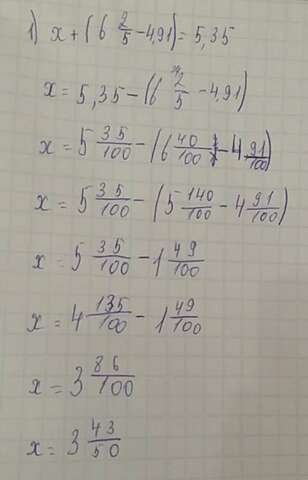 1) x + (6 2/5 - 4,91) = 5,35
x = 5,35 - (6 2/5 - 4,91)
x = 5 35/100 - (6 40/100 - 4 91/100)
x = 5 35/100 - (5 140/100 - 4 91/100)
x = 5 35/100 - 1 49/100
x = 4 135/100 - 1 49/100
x = 3 86/100
x = 3 43/50